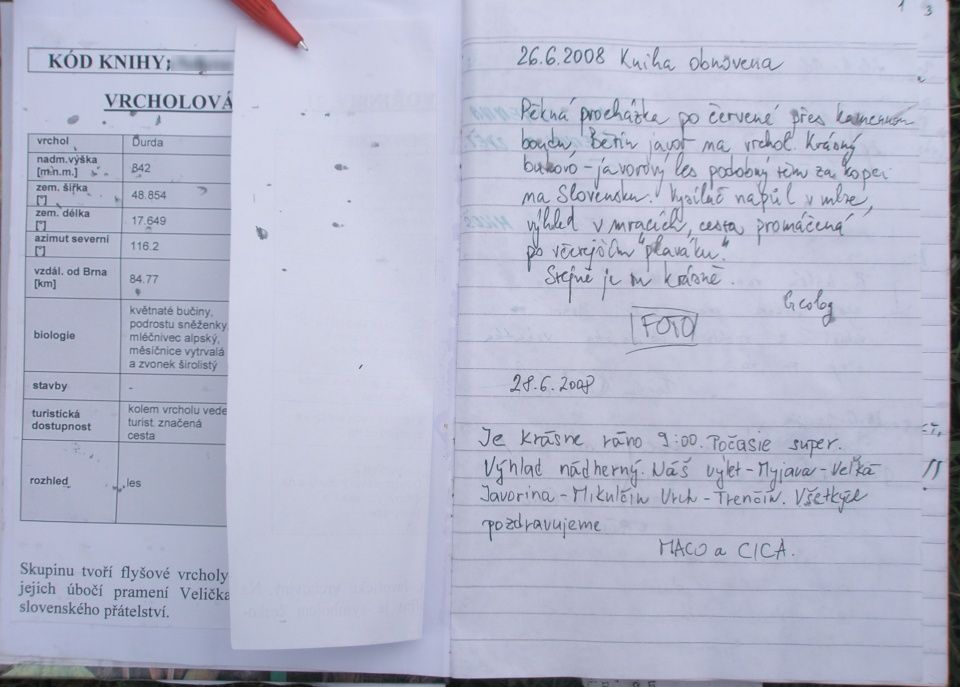 KÓD KNIHY:
VRCHOLOVÁ
vrchol Ďurda
nadm.výška [m.n.m.] 842
zem. šířka [°] 48.854
zem. délka [°] 17.649
azimut severní [°] 116.2
vzdál. od Brna [km] 84.77
biologie
květnaté bučiny,
podrostu sněženky
mléčnivec alpský,
měsíčnice vytrvalá
a zvonek širolistý
stavby -
turistická dostupnost
kolem vrcholu vede
turist. značená
cesta
rozhled les
Skupinu tvoří flyšové vrcholy
jejich úbočí pramení Velička
slovenského přátelství.
1 3
26.6.2008 Kniha obnovena
Pěkná procházka po červené přes kamennou
boudu, javor na vrchol. Krásný
bukovo-javorový les podobný těm za kopci
na Slovensku. Vysílač napůl v mlze,
výhled v mracích, cesta promáčená
po včerejším "plaváku".
Stejně je tu krásně.
Geolog
FOTO
28.6.2008
Je krásne ráno 9:00. Počasie super.
Výhlad nádherný. Náš výlet-Myjava-Veľká
Javorina-Mikulčin Vrch-Trenčín. Všetkých
pozdravujeme
MACO a CICA.